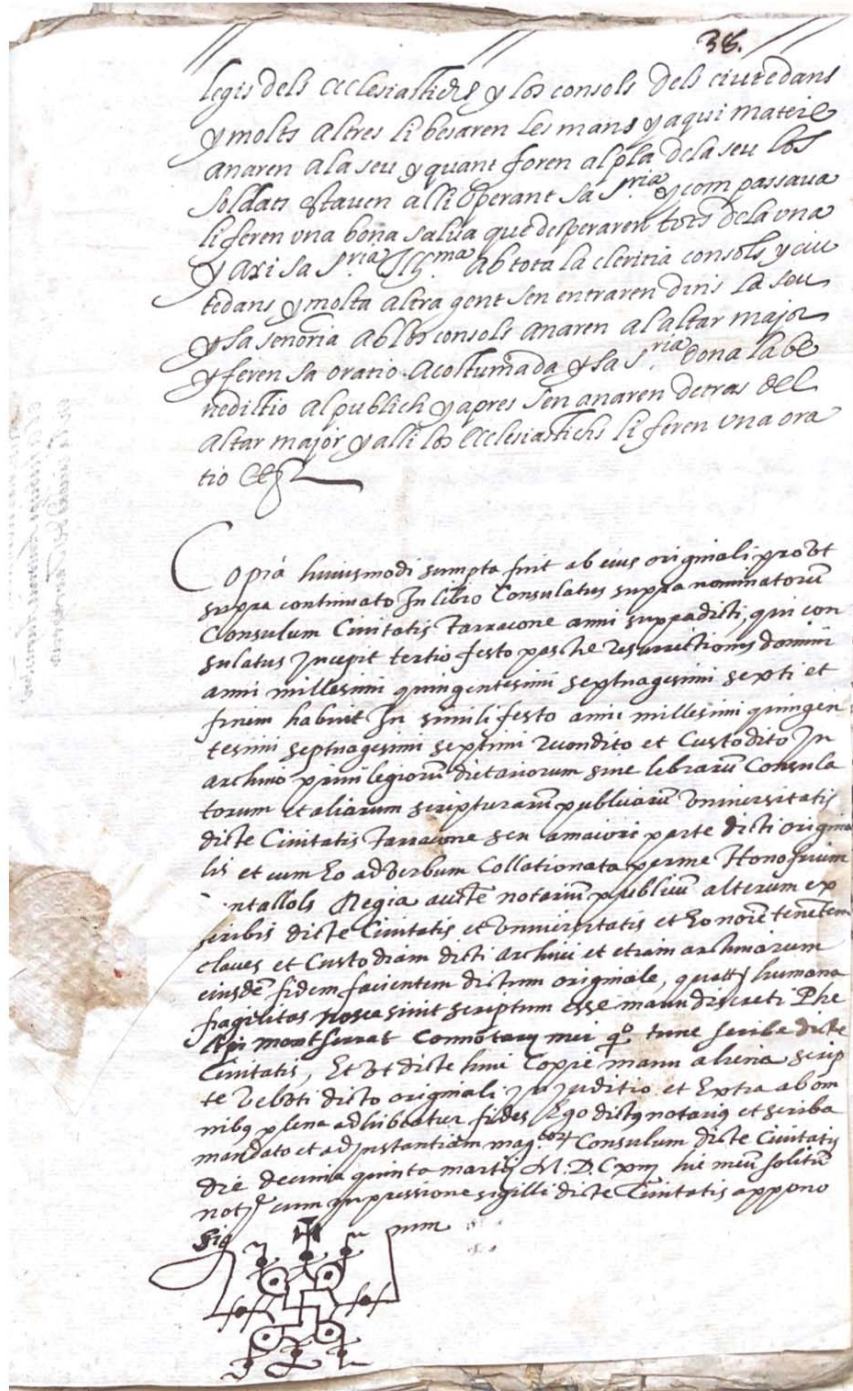 38.
legis dels ecclesiastichs y los consols dels ciutedans
y molts altres li besaren les mans y aqui mateix
anaren a la seu y quant foren al pla de la seu los
soldats estaven alli esperant sa s.ria y com passava
li feren una bona salva que desperaren tots de la una
y axi sa s.ria Ill.ma ab tota la cleritia consols y ciu
tedans y molta altra gent sen entraren dins la seu
y sa senoria ab los consols anaren al altar major
y feren sa oratio acostumada y sa s.ria dona la be
nedictio al publich y apres sen anaren detras del
altar major y alli los ecclesiastichs li feren una ora
tio &c
Copia huiusmodi sumpta fuit ab eius originali prout
supra continuato In libro Consulatus supra nominatorū
Consulum Civitatis Tarracone anni supradicti, qui con
sulatus Incepit tertio festo pasche resurrectionis domini
anni millesimi quingentesimi septuagesimi sexti et
finem habuit In simili festo anni millesimi quingen
tesimi septuagesimi septimi recondito et Custodito In
archivo privilegiorū dietariorum sive librarū Consula
torum et aliarum scripturarū publicarū Universitatis
dicte Civitatis Tarracone seu a maiori parte dicti origina
lis et cum Eo ad verbum Collationata per me Honofrium
ntallols Regia aucte notariū publicū alterum ex
scribis dicte Civitatis et Universitatis et Eo noīe tenētem
claves et Custodiam dicti archivi et etiam archivorum
eiusdē fidem facientem dictum originale, humana
fragilitas nosce sinit scriptum esse manu discreti Phe
montserrat Connotary mei qº tunc scribe dicte
Civitatis, Et ut dicte huic Copie manu aliena scrip
te veluti dicto originali In juditio et Extra ab om
nibꝯ plena adhibeatur fides, Ego dictꝯ notariꝯ et scriba
mandato et ad Instantiam mag.cor Consulum dicte Civitatis
die decima quinta martij M.D.Cxiij hic meū solitū
notę cum Impressione sigilli dicte Civitatis appono
Sig num